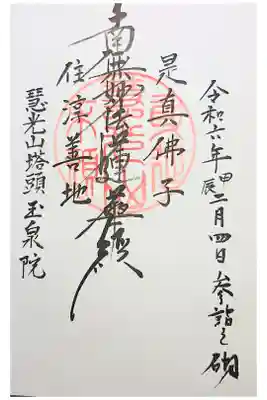 令和六年甲辰二月四日参詣之砌
是真佛子
南無妙法蓮華經
住淳善地
慧光山塔頭玉泉院